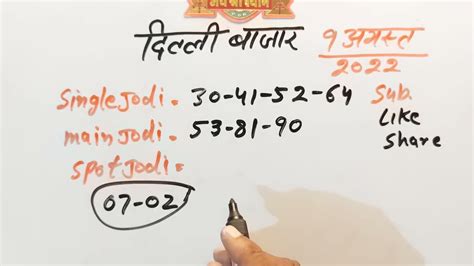 दिल्ली बाजार 9 अगस्त
2022
Single Jodi = 30-41-52-64 Sub.
main Jodi = 53-81-90 Like
Share
Spot Jodi =
07-02